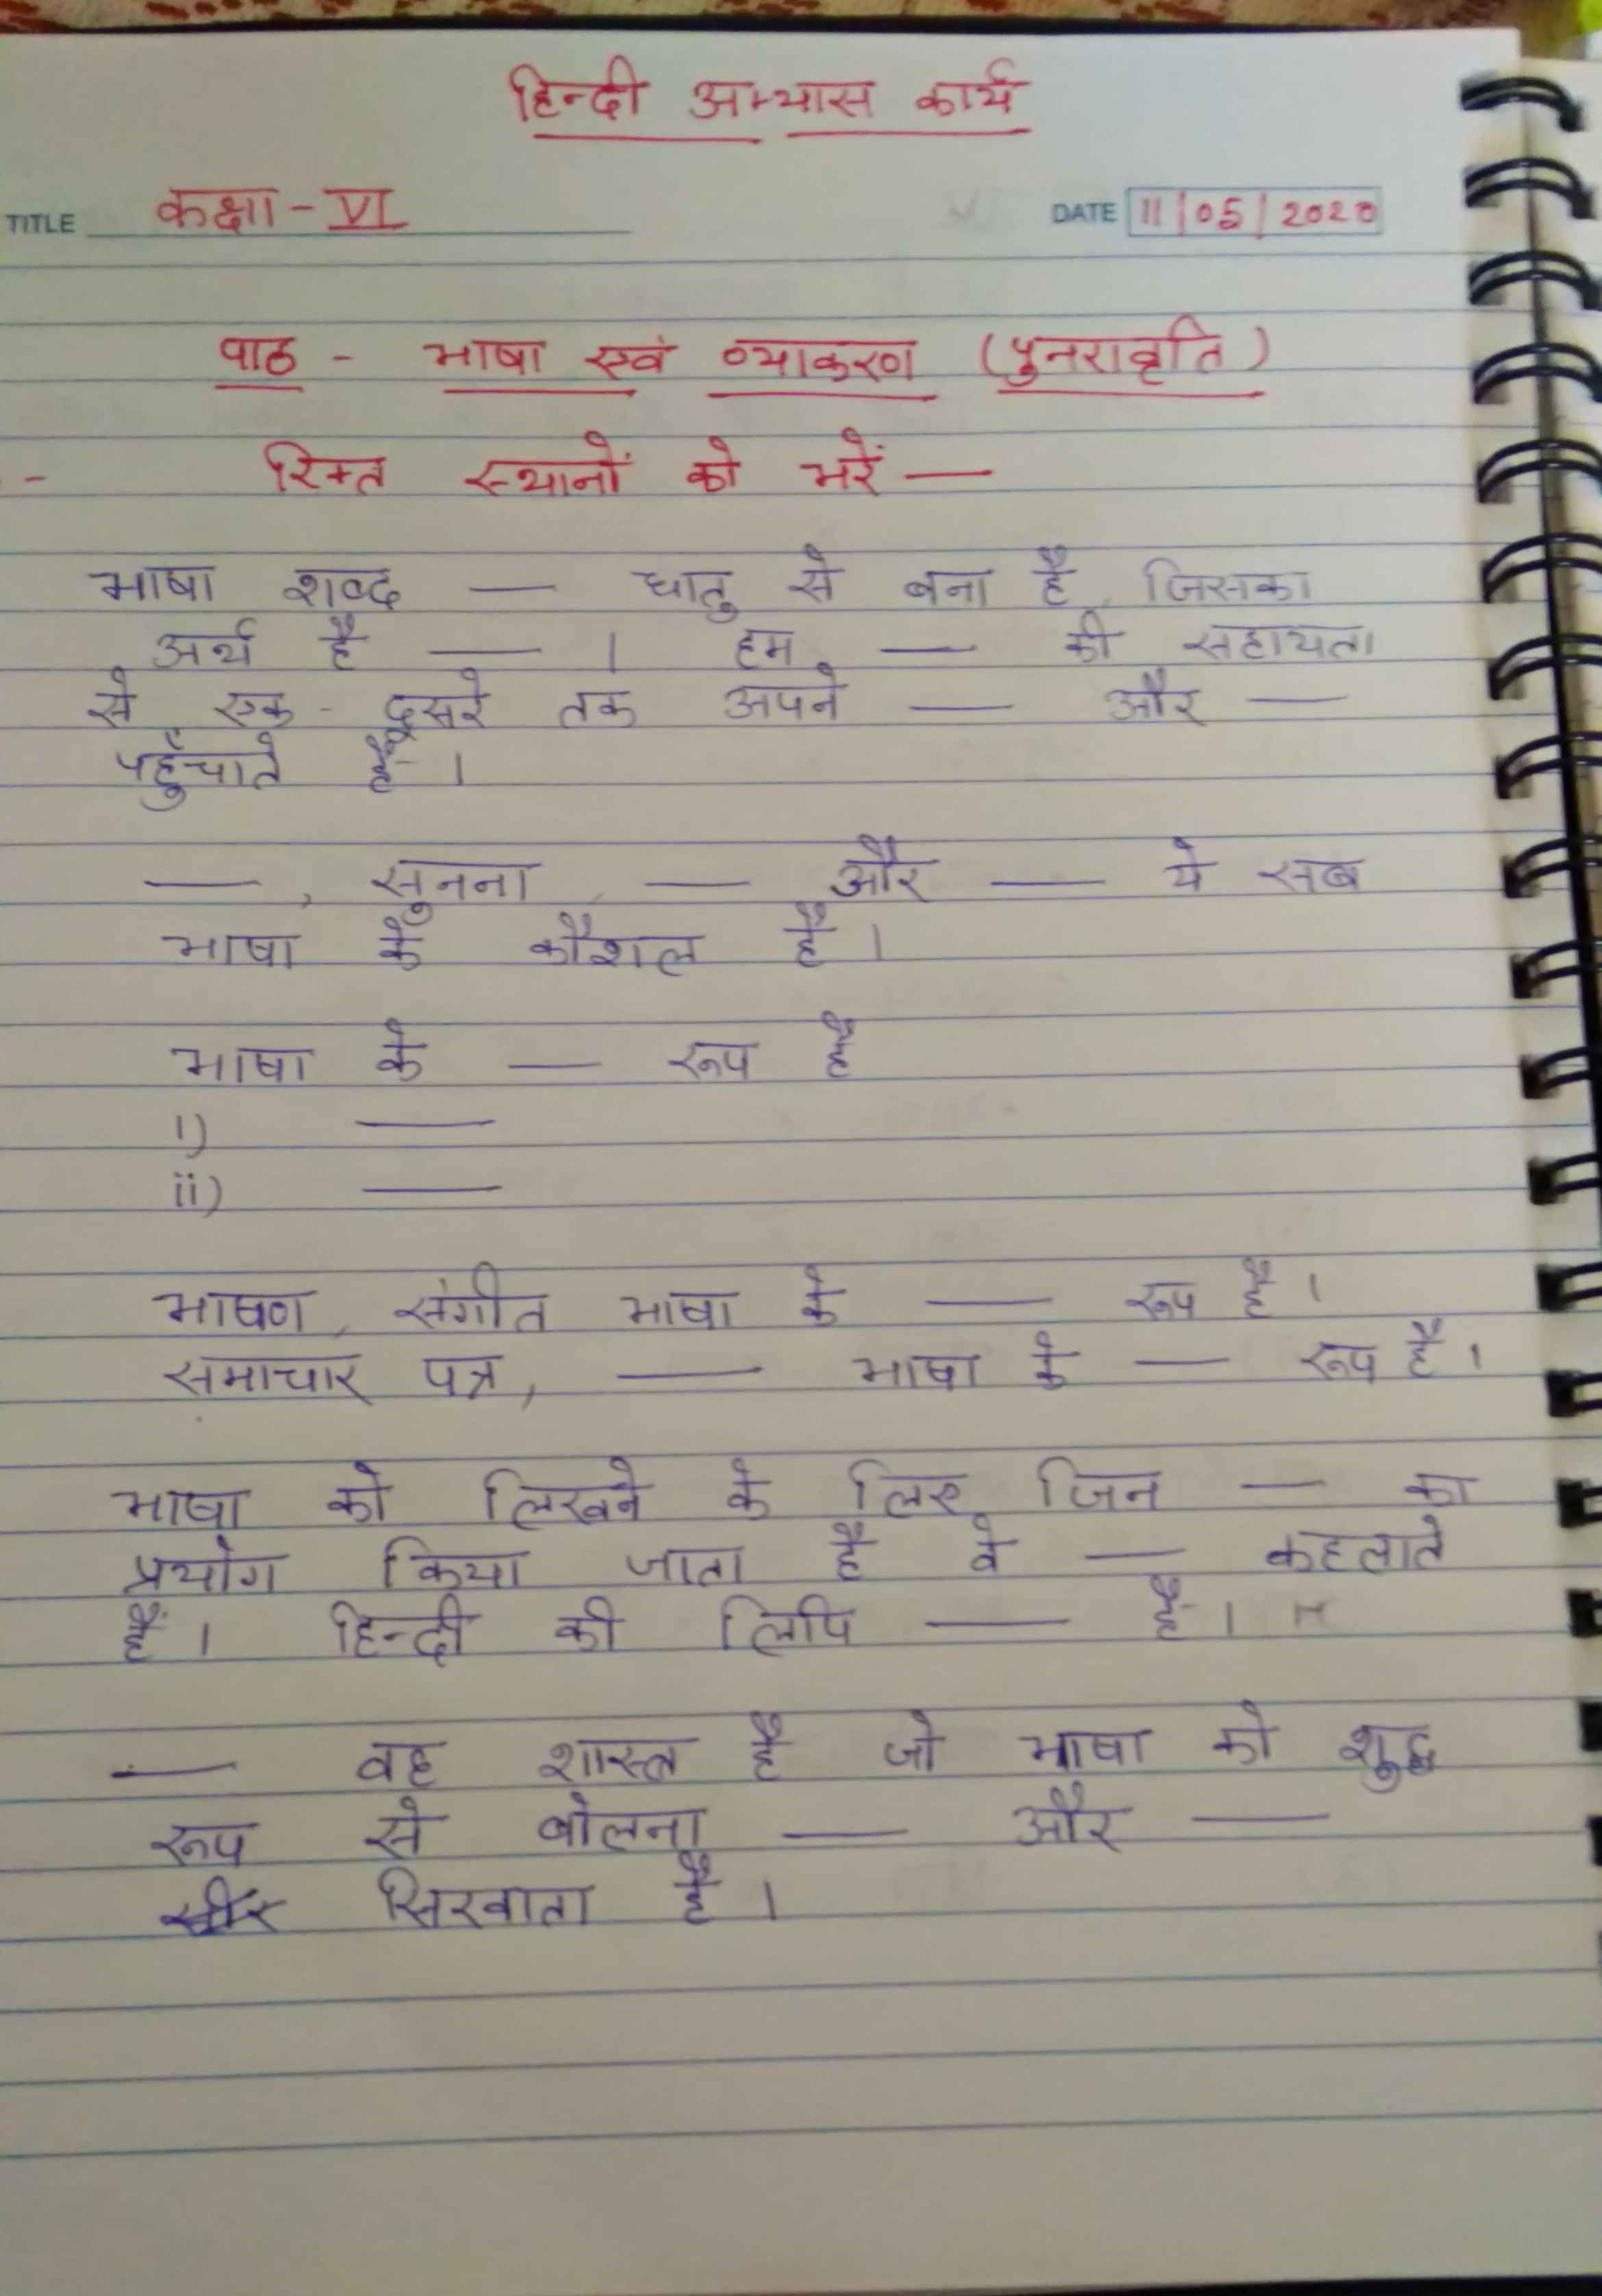 हिन्दी अभ्यास कार्य
TITLE कक्षा - VI DATE 11/05/2020
पाठ - भाषा एवं व्याकरण (पुनरावृति)
- रिक्त स्थानों को भरें —
भाषा शब्द — धातु से बना है, जिसका
अर्थ है — । हम — की सहायता
से एक - दूसरे तक अपने — और —
पहुँचाते हैं ।
—, सुनना, — और — ये सब
भाषा के कौशल हैं ।
भाषा के — रूप हैं
i) —
ii) —
भाषण, संगीत भाषा के — रूप हैं ।
समाचार पत्र, — भाषा के — रूप हैं ।
भाषा को लिखने के लिए जिन — का
प्रयोग किया जाता है वे — कहलाते
हैं । हिन्दी की लिपि — है ।
— वह शास्त्र है जो भाषा को शुद्ध
रूप से बोलना — और —
सिखाता है ।